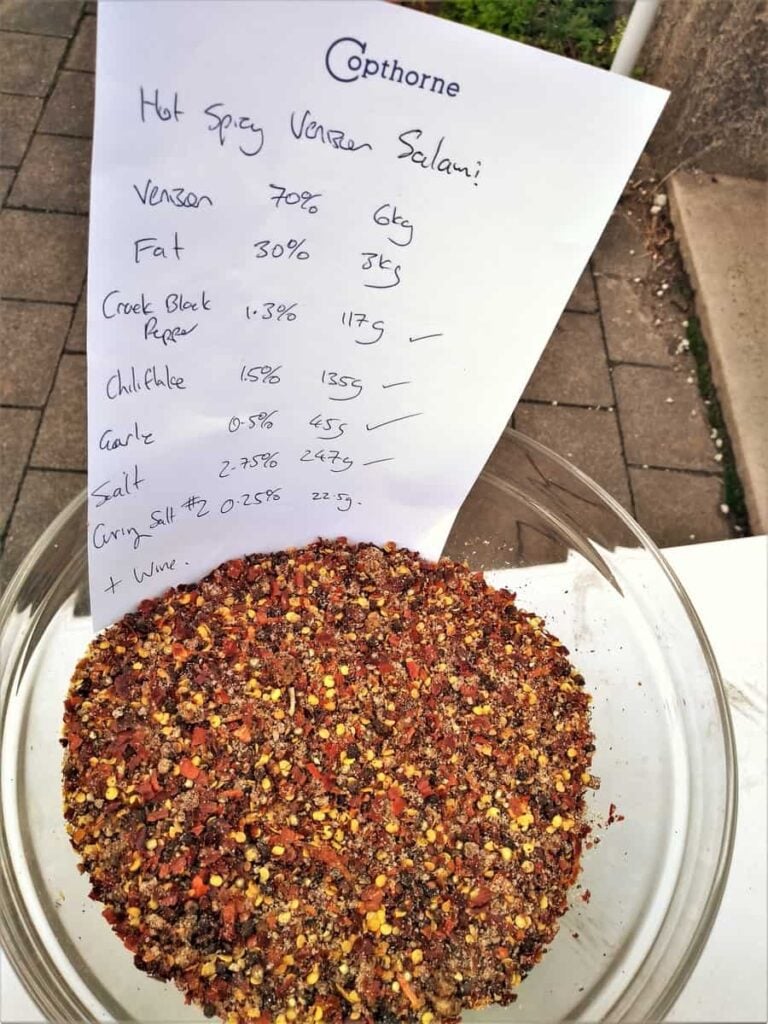 Copthorne
Hot Spicy Venison Salami!
Venison 70% 6kg
Fat 30% 3kg
Crack Black
Pepper 1.3% 117g ✓
Chiliflake 1.5% 135g ✓
Garlic 0.5% 45g ✓
Salt 2.75% 247g ✓
Curing Salt #2 0.25% 22.5g.
+ Wine.